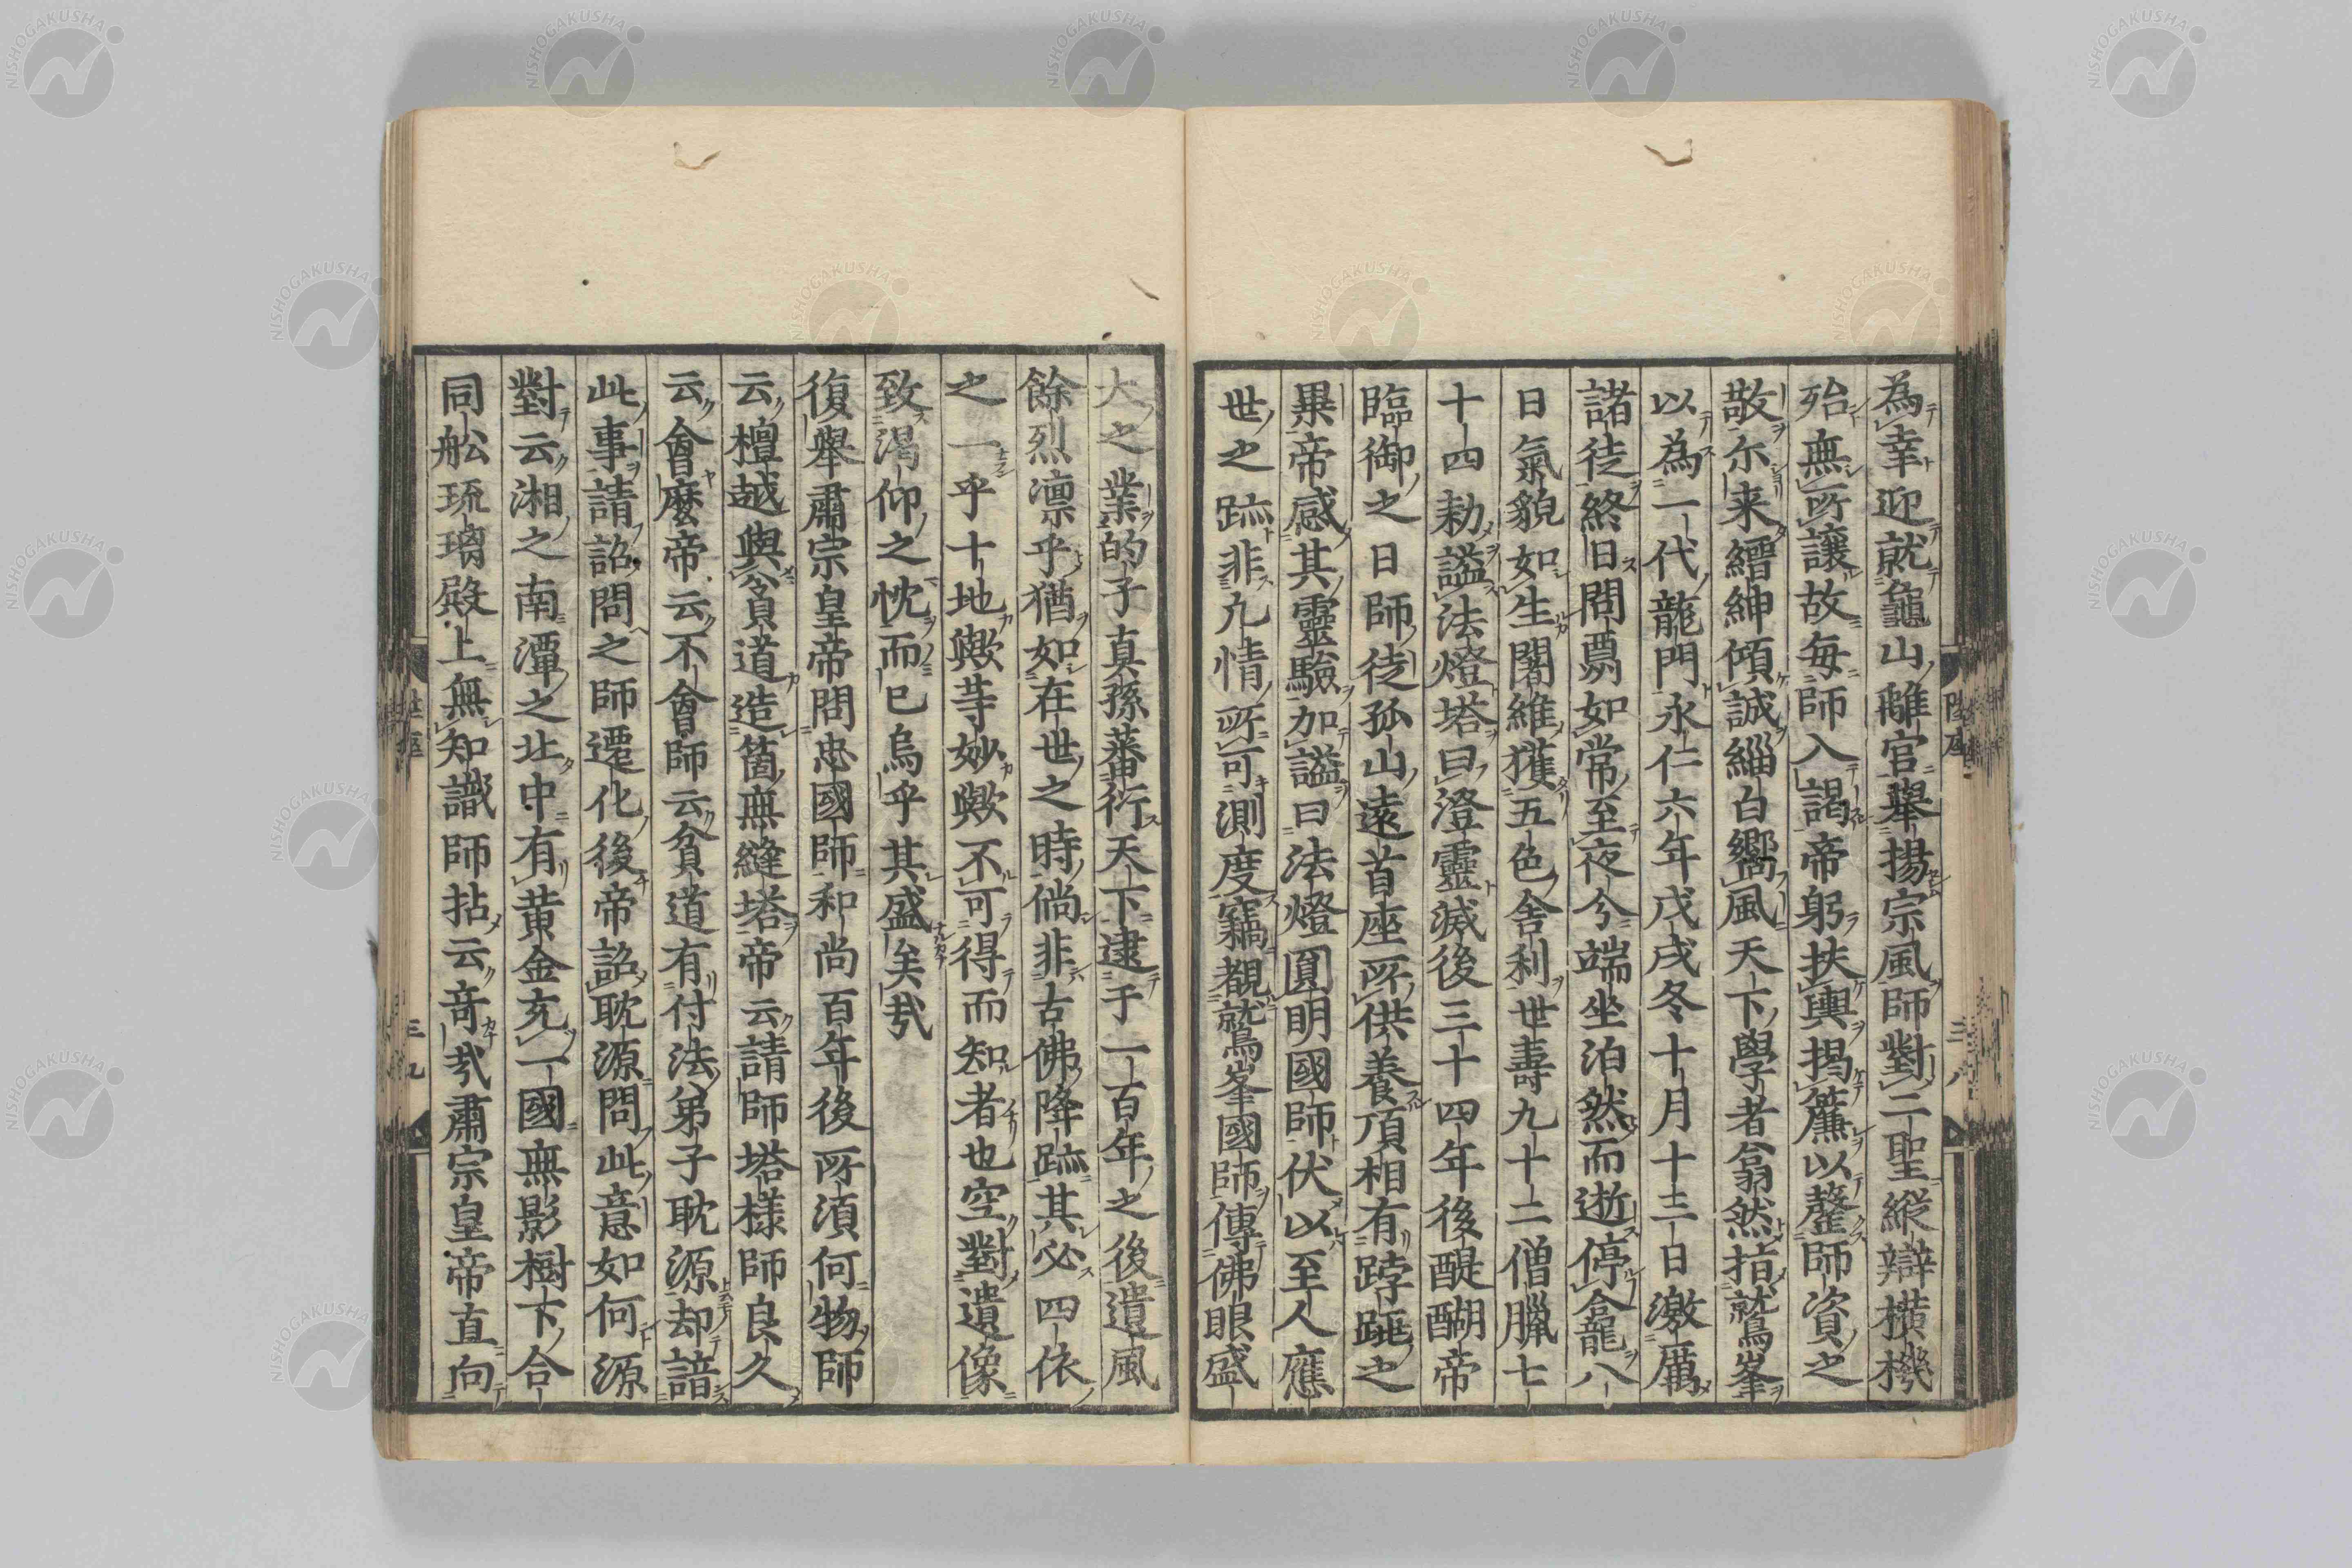 為幸迎就龜山離宮舉揚宗風師對二聖縱辯橫機
殆無所讓故每師入謁帝躬扶輿揭簾以蹵師資之
敬尓来縉紳傾誠緇白嚮風天下學者翕然指鷲峯
以為一代龍門永仁六年戊戌冬十月十三日激厲
諸徒終日問夢如常至夜兮端坐泊然而逝停龕八
日氣貌如生闍維獲五色舍利世壽九十二僧臘七
十四勑謚法燈塔曰澄靈滅後三十四年後醍醐帝
臨御之日師徒孤山遠首座所供養頂相有跨跳之
果帝感其靈驗加謚曰法燈圓明國師伏以至人應
世之跡非凢情所可測度竊覩鷲峯國師傳佛眼盛
大之業的子真孫蕃衍天下逮于一百年之後遺風
餘烈凛乎猶如在世之時倘非古佛降跡其必四依
之一乎十地歟䒭妙歟不可得而知者也空對遺像
致渴仰之忱而已烏乎其盛矣㢤
復舉肅宗皇帝問忠國師和尚百年後所湏何物師
云檀越與貧道造箇無縫塔帝云請師塔様師良久
云會麼帝云不會師云貧道有付法弟子耽源却諳
此事請詔問之師遷化後帝詔耽源問此意如何源
對云湘之南潭之北中有黄金充一國無影樹下合
同舩琉璃殿上無知識師拈云奇㢤肅宗皇帝直向